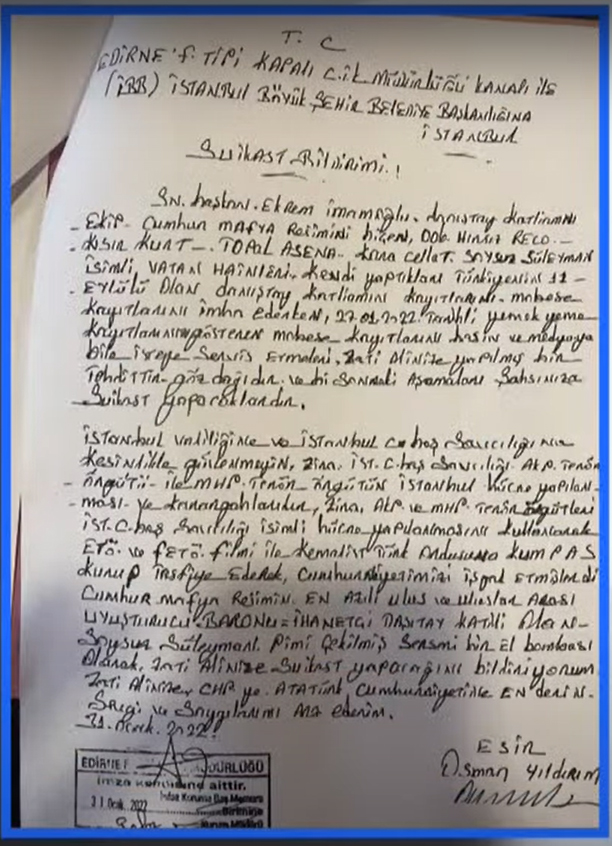 T. C
EDİRNE F TİPİ KAPALI C.İK MÜDÜRLÜĞÜ KANALI ile
(İBB) İSTANBUL BÜYÜK ŞEHİR BELEDİYE BAŞKANLIĞINA
İSTANBUL
Suikast Bildirimi!
Sn. başkan. Ekrem imamoğlu. danıştay katliamını
- Ekip. Cumhur mafya Rejimini
- KISIR KURT - TOPAL ASENA - Kara Cellat. SOYSUZ SÜLEYMAN
isimli, VATAN HAİNLERİ. Kendi yaptıkları Türkiyenin 11-
- Eylülü Olan danıştay katliamın kayıtlarını - mobese
kayıtlarını imha ederken, 27.01.2022 Tarihli yemek yeme
kayıtlarını gösteren mobese kayıtlarını basın ve medyaya
bile isteye Servis Etmeleri. Zati Alinize yapılmış bir
Tehdittir - göz dağıdır. ve bir Sonraki Aşamaları Şahsınıza
Suikast yapacaklardır.
İstanbul valiliğine ve istanbul C. baş Savcılığına
kesinlikle güvenmeyin, zira. İST. C. baş Savcılığı. AKP. Terör
- örgütü - ile MHP. Terör örgütün İstanbul hücre yapılan-
- ması ve karargahlarıdır, zira, AKP. ve MHP. Terör örgütleri
İST. C. baş Savcılığı isimli hücre yapılanmasını kullanarak
ETÖ. ve FETÖ. filmi ile Kemalist Türk Ordusuna KUMPAS
kurup Tasfiye Ederek, Cumhuriyetimizi işgal etmişlerdi
Cumhur mafya Rejimin. EN AZILI ulus ve uluslar Arası
UYUŞTURUCU - BARONU = İHANETÇİ KATİLİ Olan -
Soysuz Süleyman. Pimi çekilmiş Sersmi bir El bombası
Olarak. Zati Alinize Suikast yapacağını bildiriyorum
Zati Alinize. CHP ye. ATATÜRK Cumhuriyetine EN derin -
Sevgi ve Saygılarımı Arz ederim.
31. Ocak. 2022
ESİR
Osman Yıldırım
EDİRNE F MÜDÜRLÜĞÜ
imza kendisine aittir.
31 Ocak 2022
İnfaz Koruma Baş Memuru